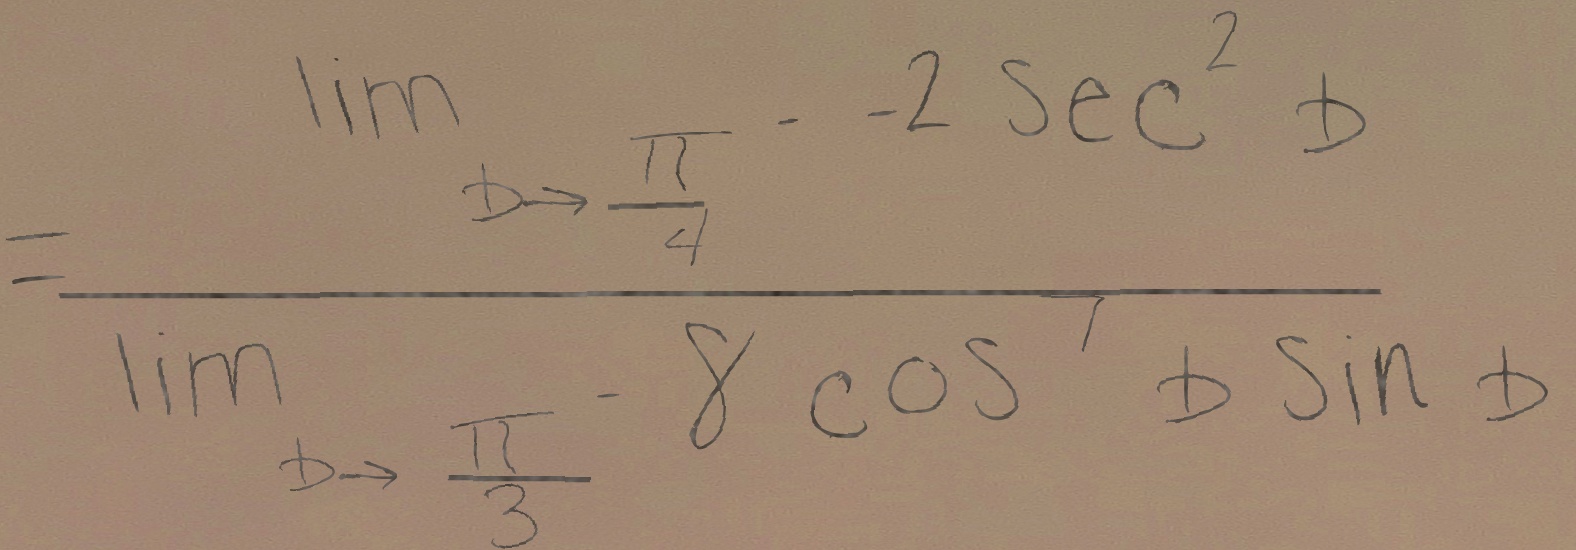 = \frac{\lim_{D \to \frac{\pi}{4}^{-}} -2 \sec^{2} D}{\lim_{D \to \frac{\pi}{3}^{-}} 8 \cos^{7} D \sin D}